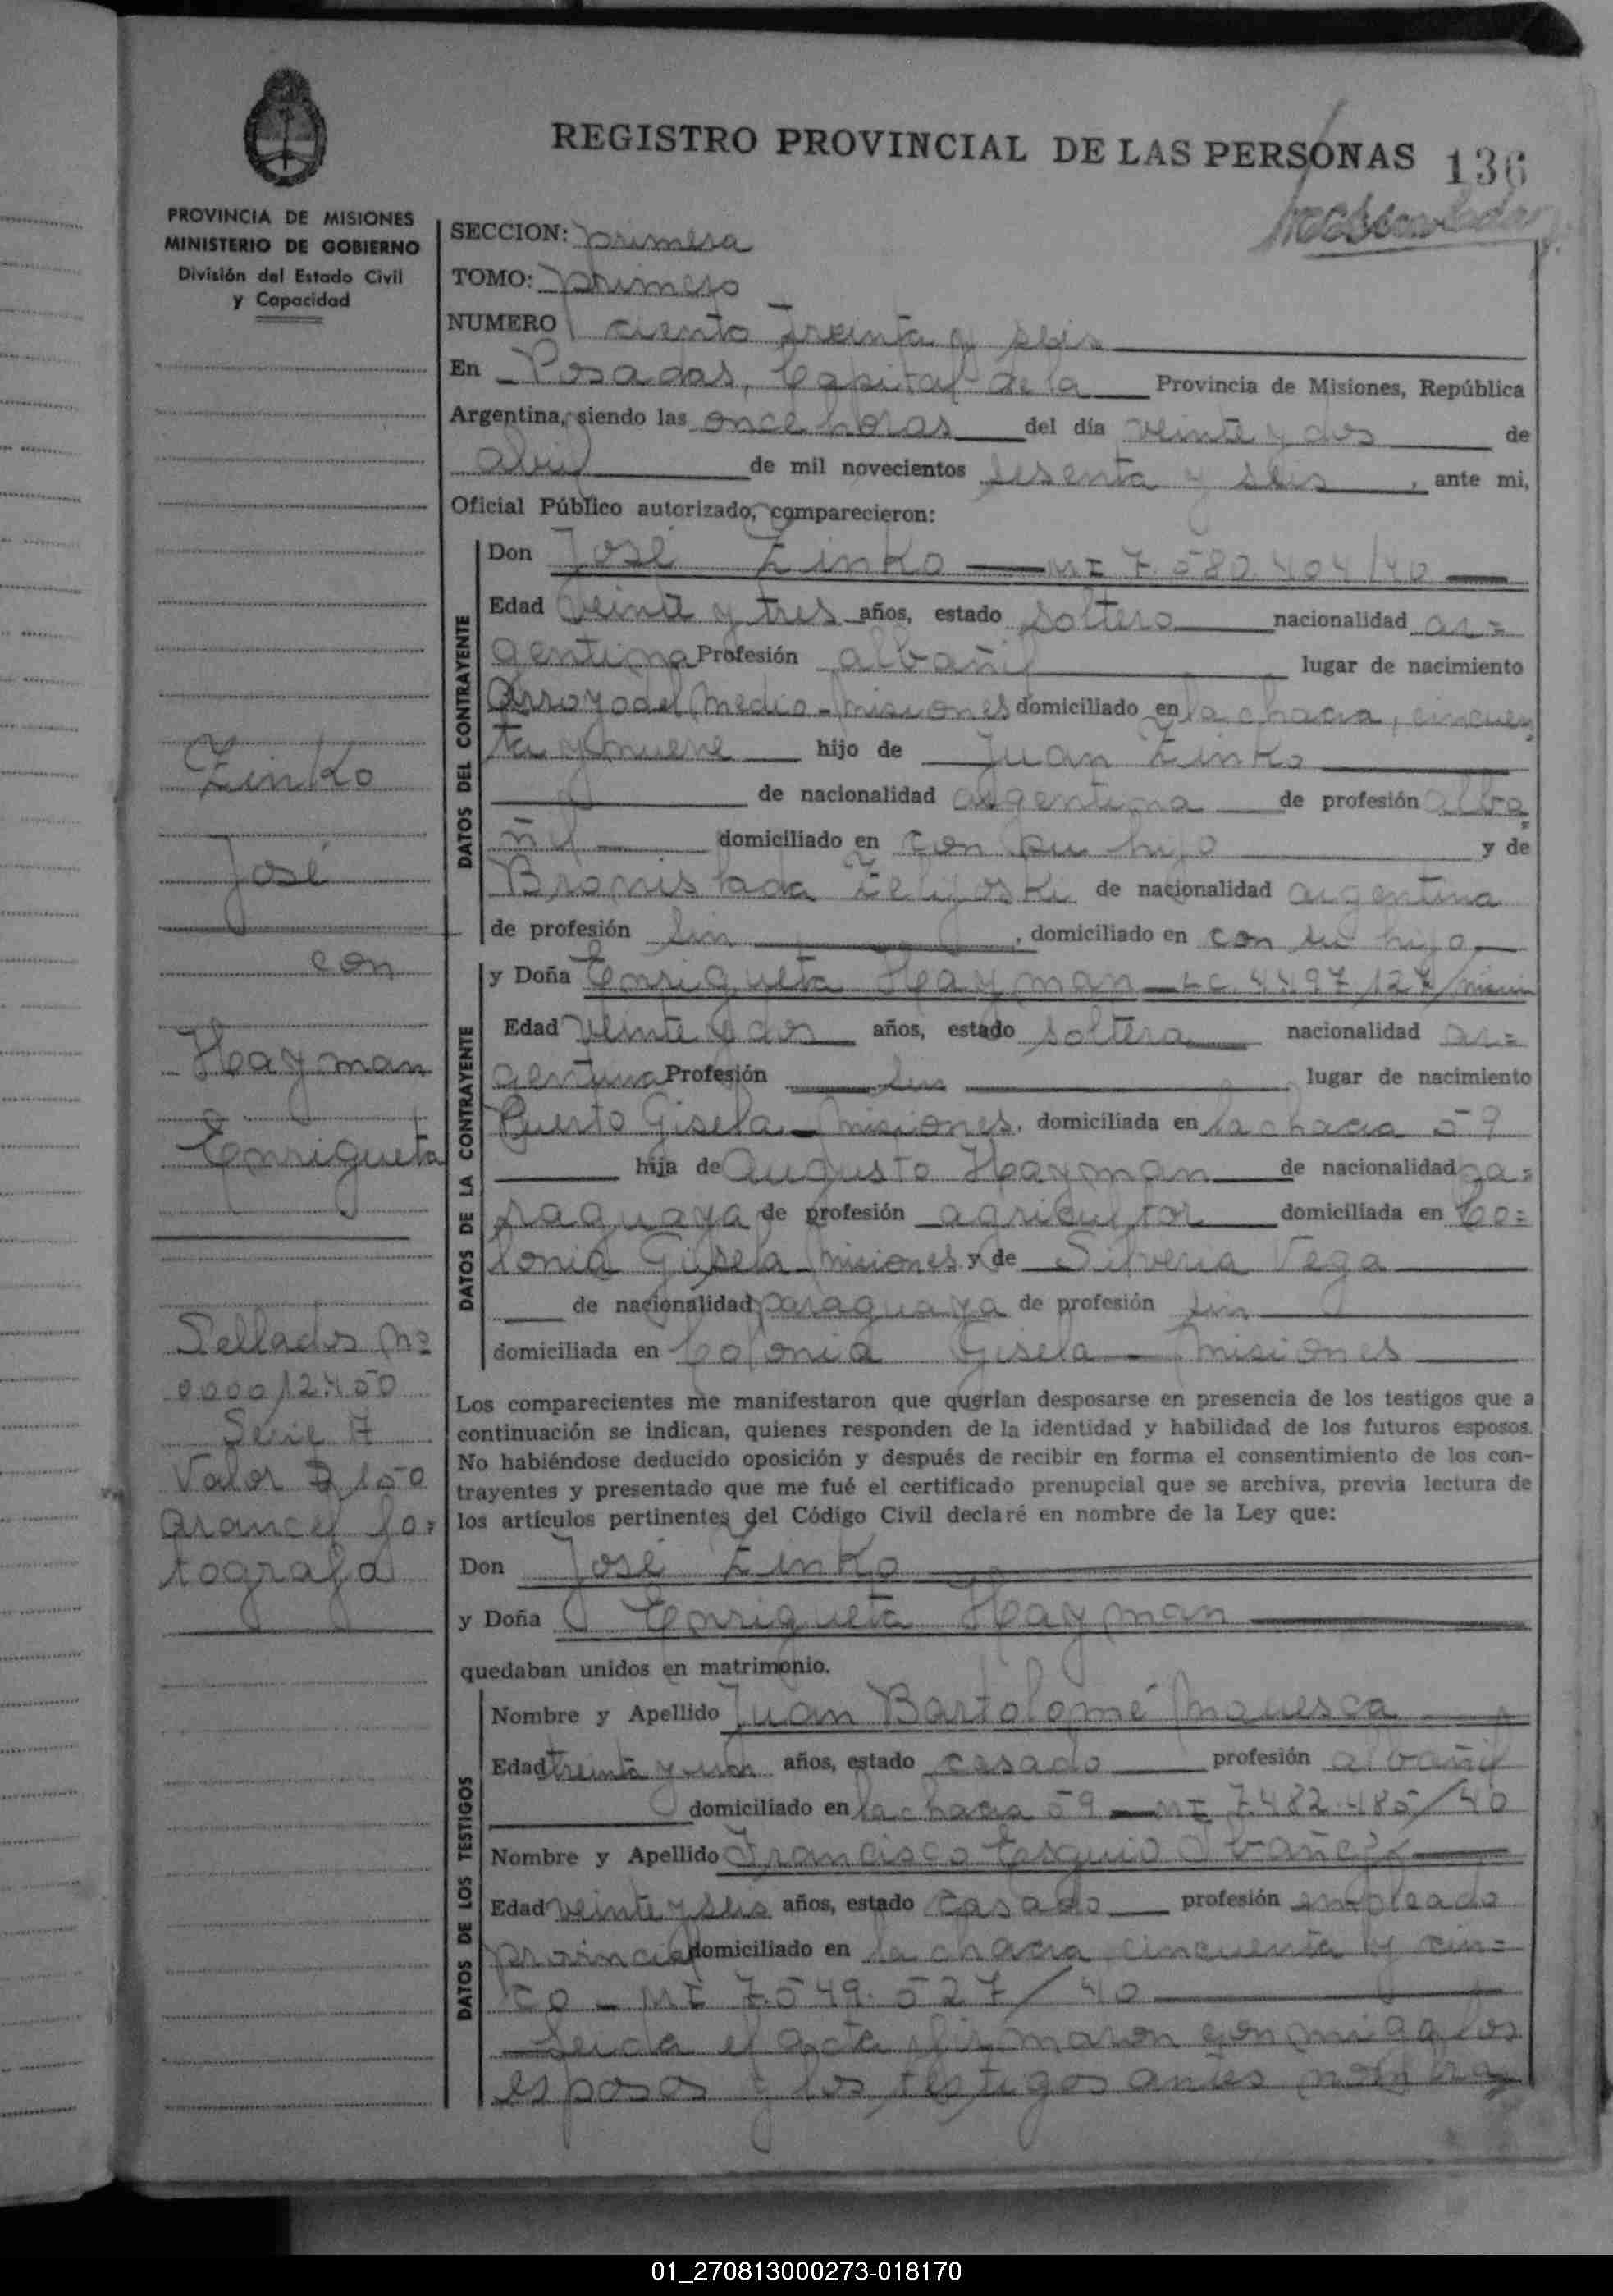 REGISTRO PROVINCIAL DE LAS PERSONAS 136
PROVINCIA DE MISIONES
MINISTERIO DE GOBIERNO
División del Estado Civil
y Capacidad
Zinko
José
con
Hayman
Enriqueta
Sellados Nº
Serie A
Valor $ 150
Arancel fo=
tografa
SECCION: primera
TOMO: primero
NUMERO ciento treinta y seis
En Posadas, Capital de la Provincia de Misiones, República
Argentina, siendo las once horas del día veinte y dos de
abril de mil novecientos sesenta y seis, ante mi,
Oficial Público autorizado, comparecieron:
DATOS DEL CONTRAYENTE
Don José Zinko — MI 7.580.404/40
Edad veinte y tres años, estado soltero nacionalidad ar=
gentina Profesión albañil lugar de nacimiento
Arroyo del Medio - Misiones domiciliado en la chacra, cincuen
ta y nueve hijo de Juan Zinko
de nacionalidad argentina de profesión alba
ñil domiciliado en con su hijo y de
Bronislada de nacionalidad argentina
de profesión sin, domiciliado en con su hijo
DATOS DE LA CONTRAYENTE
y Doña Enriqueta Hayman — LC 4.497.127/
Edad veinte y dos años, estado soltera nacionalidad ar=
gentina Profesión sin lugar de nacimiento
Puerto Gisela - Misiones, domiciliada en la chacra 59
hija de Augusto Hayman de nacionalidad pa=
raguaya de profesión agricultor domiciliada en Co=
lonia Gisela - Misiones y de Silveria Vega
de nacionalidad paraguaya de profesión sin
domiciliada en Colonia Gisela - Misiones
Los comparecientes me manifestaron que querían desposarse en presencia de los testigos que a
continuación se indican, quienes responden de la identidad y habilidad de los futuros esposos.
No habiéndose deducido oposición y después de recibir en forma el consentimiento de los con-
trayentes y presentado que me fué el certificado prenupcial que se archiva, previa lectura de
los artículos pertinentes del Código Civil declaré en nombre de la Ley que:
Don José Zinko
y Doña Enriqueta Hayman
quedaban unidos en matrimonio.
DATOS DE LOS TESTIGOS
Nombre y Apellido Juan Bartolomé
Edad treinta y un años, estado casado profesión albañil
domiciliado en la chacra 59 — MI 7.482.485/40
Nombre y Apellido Francisco
Edad veinte y seis años, estado casado profesión empleado
provincial domiciliado en la chacra cincuenta y cin=
co - MI 7.549.527/40
Leida el acta firmaron conmigo los
esposos y los testigos antes nombra
01_270813000273-018170